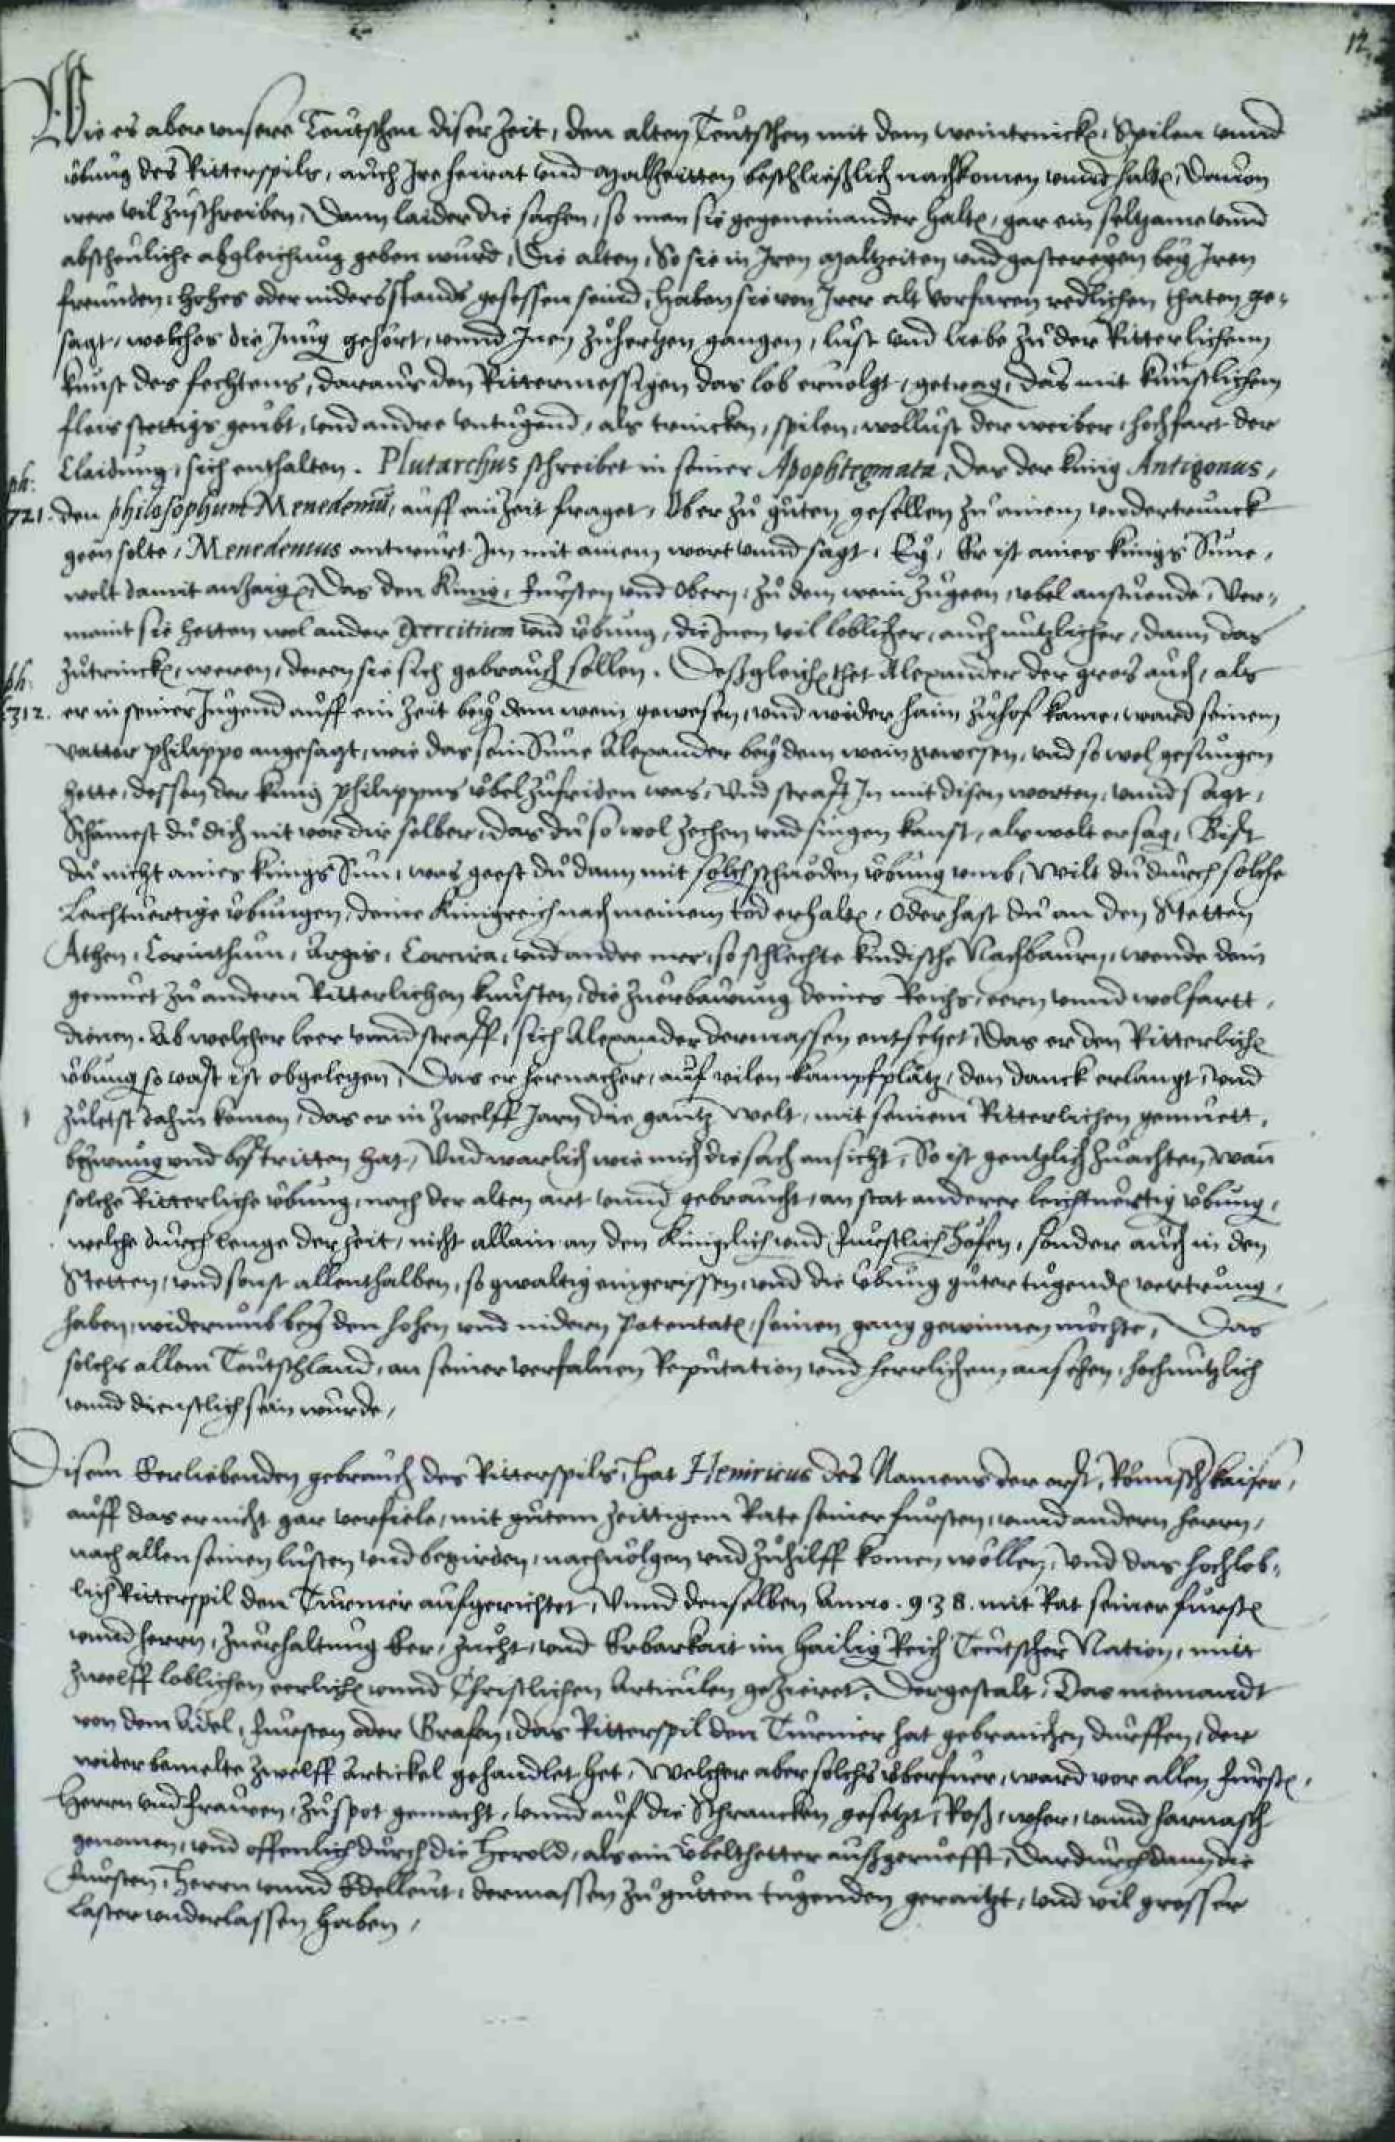 12.
Wie es aber unsere Teutschen diser Zeit, den alten Teutschen mit dem weintrincken, Spilen unnd
übung des Ritterspils, auch Ire heirat und malzeitten beschließlich nachkomen unnd halten, Davon
were vil zuschreiben, Dann laider die sachen, so man sie gegeneinander halten, gar ein seltzame unnd
abscheuliche abgleichung geben wurd, Die alten, So sie in Iren malzeiten und gastereyen bey Iren
freunden, hohes oder niders stands gesessen seind, haben sie von Irer alt vorfaren redlichen thaten ge-
sagt, welches die Jung gehört, unnd Inen zuhertzen gangen, lust und liebe zu der Ritterlichenn
kunst des fechtens, daraus den Rittermessigen das lob ervolgt, getragen, das mit künstlichem
fleis stettigs geübt, und andre untugend, als trincken, spilen, wollust der weiber, hochfart der
Claidung, sich enthalten. Plutarchus schreibet in seiner Apophtegmata, Das der künig Antigonus,
ph:
721.
den philosophum Menedemum, auff ein Zeit fraget, Ob er zu guten gesellen zu ainem undertrunck
geen solte, Menedemus antwurt Im mit ainem wort unnd sagt, Ey, Er ist aines künigs Sune,
wolt damit anzaigen, Das den Künig, Fürsten und Obern, zu dem wein zugeen, übel anstuende, Ver-
maint sie hetten wol ander Exercitium und übung, die Inen vil loblicher, auch nutzlicher, dann das
zutrincken, weren, deren sie sich gebrauch sollen. Deßgleichen thet Alexander der gros auch, als
ph:
312.
er in seiner Jugend auff ein Zeit bey dem wein gewesen, und wider haim zuhof kame, ward seinem
vatter philippo angesagt, wie das sein Sune Alexander bey dem wein gewesen, und so wol gesungen
hette, dessen der künig philippus übel zufriden was, Und straft In mit disen worten, unnd sagt,
Schamest du dich nit vor dir selber, das du so wol zechen und singen kanst, als wolt er sag, Bist
du nicht aines künigs Sun, was geest du dann mit solch schnöden übung umb, Wilt du durch solche
Leichtvertige übungen, deine Künigreich nach meinem tod erhalten, Oder hast du an den Stetten
Athen, Corinthum, Argis, Corcira, und andre mer, so schlechte kindische Nachbaurn, wende dein
gemüet zu andern Ritterlichen künsten, die zu erbawung deines Reichs, eern unnd wolfartt,
dienen. Ab welcher leer unnd straff, sich Alexander dermassen entsetzet, Das er den Ritterlichen
übung so vast ist obgelegen, Das er hernacher, auf vilen kampfplätz, den danck erlangt, und
zuletst dahin komen, das er in zwelff Jarn die gantz Welt, mit seinem Ritterlichen gemüett,
bezwung und bestritten hat, Und warlich wie mich die sach ansicht, So ist gentzlich zuachten, wan
solche Ritterliche übung, nach der alten art unnd gebraucht, an stat anderer leichtvertig übung,
welche durch lenge der Zeit, nicht allain an den Küniglich und Fürstlich Höfen, sonder auch in den
Stetten, und sonst allenthalben, so gwaltig eingerissen, und die übung guter tugenden vertrung,
haben, widerumb bey den hohen und nidern Potentaten, seinen gang gewinnen möchte, Das
solchs allem Teutschland, an seiner verfalnen Reputation und herrlichem ansehen, hochnutzlich
unnd dienstlich sein wurde,
Disem Eerliebenden gebrauch des Ritterspils, hat Henricus des Namens der erst, Römisch kaiser,
auff das er nicht gar verfiele, mit gutem zeittigem Rate seiner fürsten, unnd andern herrn,
nach allen seinen lusten und begirden, nachvolgen und zuhilff komen wöllen, Und das hochlob-
lich Ritterspil den Turnier aufgerichtet, Unnd denselben Anno. 938. mit Rat seiner fürsten
unnd herrn, zuerhaltung Eer, zucht, und Erbarkait im Hailig Reich Teutscher Nation, mitt
zwelff loblichen eerlichen unnd Christlichen Articulen gezieret, Dergestalt, Das niemandt
von dem Adel, Fürsten oder Grafen, das Ritterspil den Turnier hat gebrauchen dürffen, der
wider bemelte zwelff Artickel gehandlet het, Welcher aber solchs überfuer, ward vor allen fürsten,
Herrn und frawen, zu spot gemacht, unnd auf die Schrancken gesetzt, Roß, wher, unnd harnasch
genomen, und offenlich durch die Herold, als ein übelthetter außgeruefft, Dardurch dann die
Fürsten, Herrn unnd Edelleut, dermassen zu gutten tugenden geraitzt, und vil grosser
Laster underlassen haben,